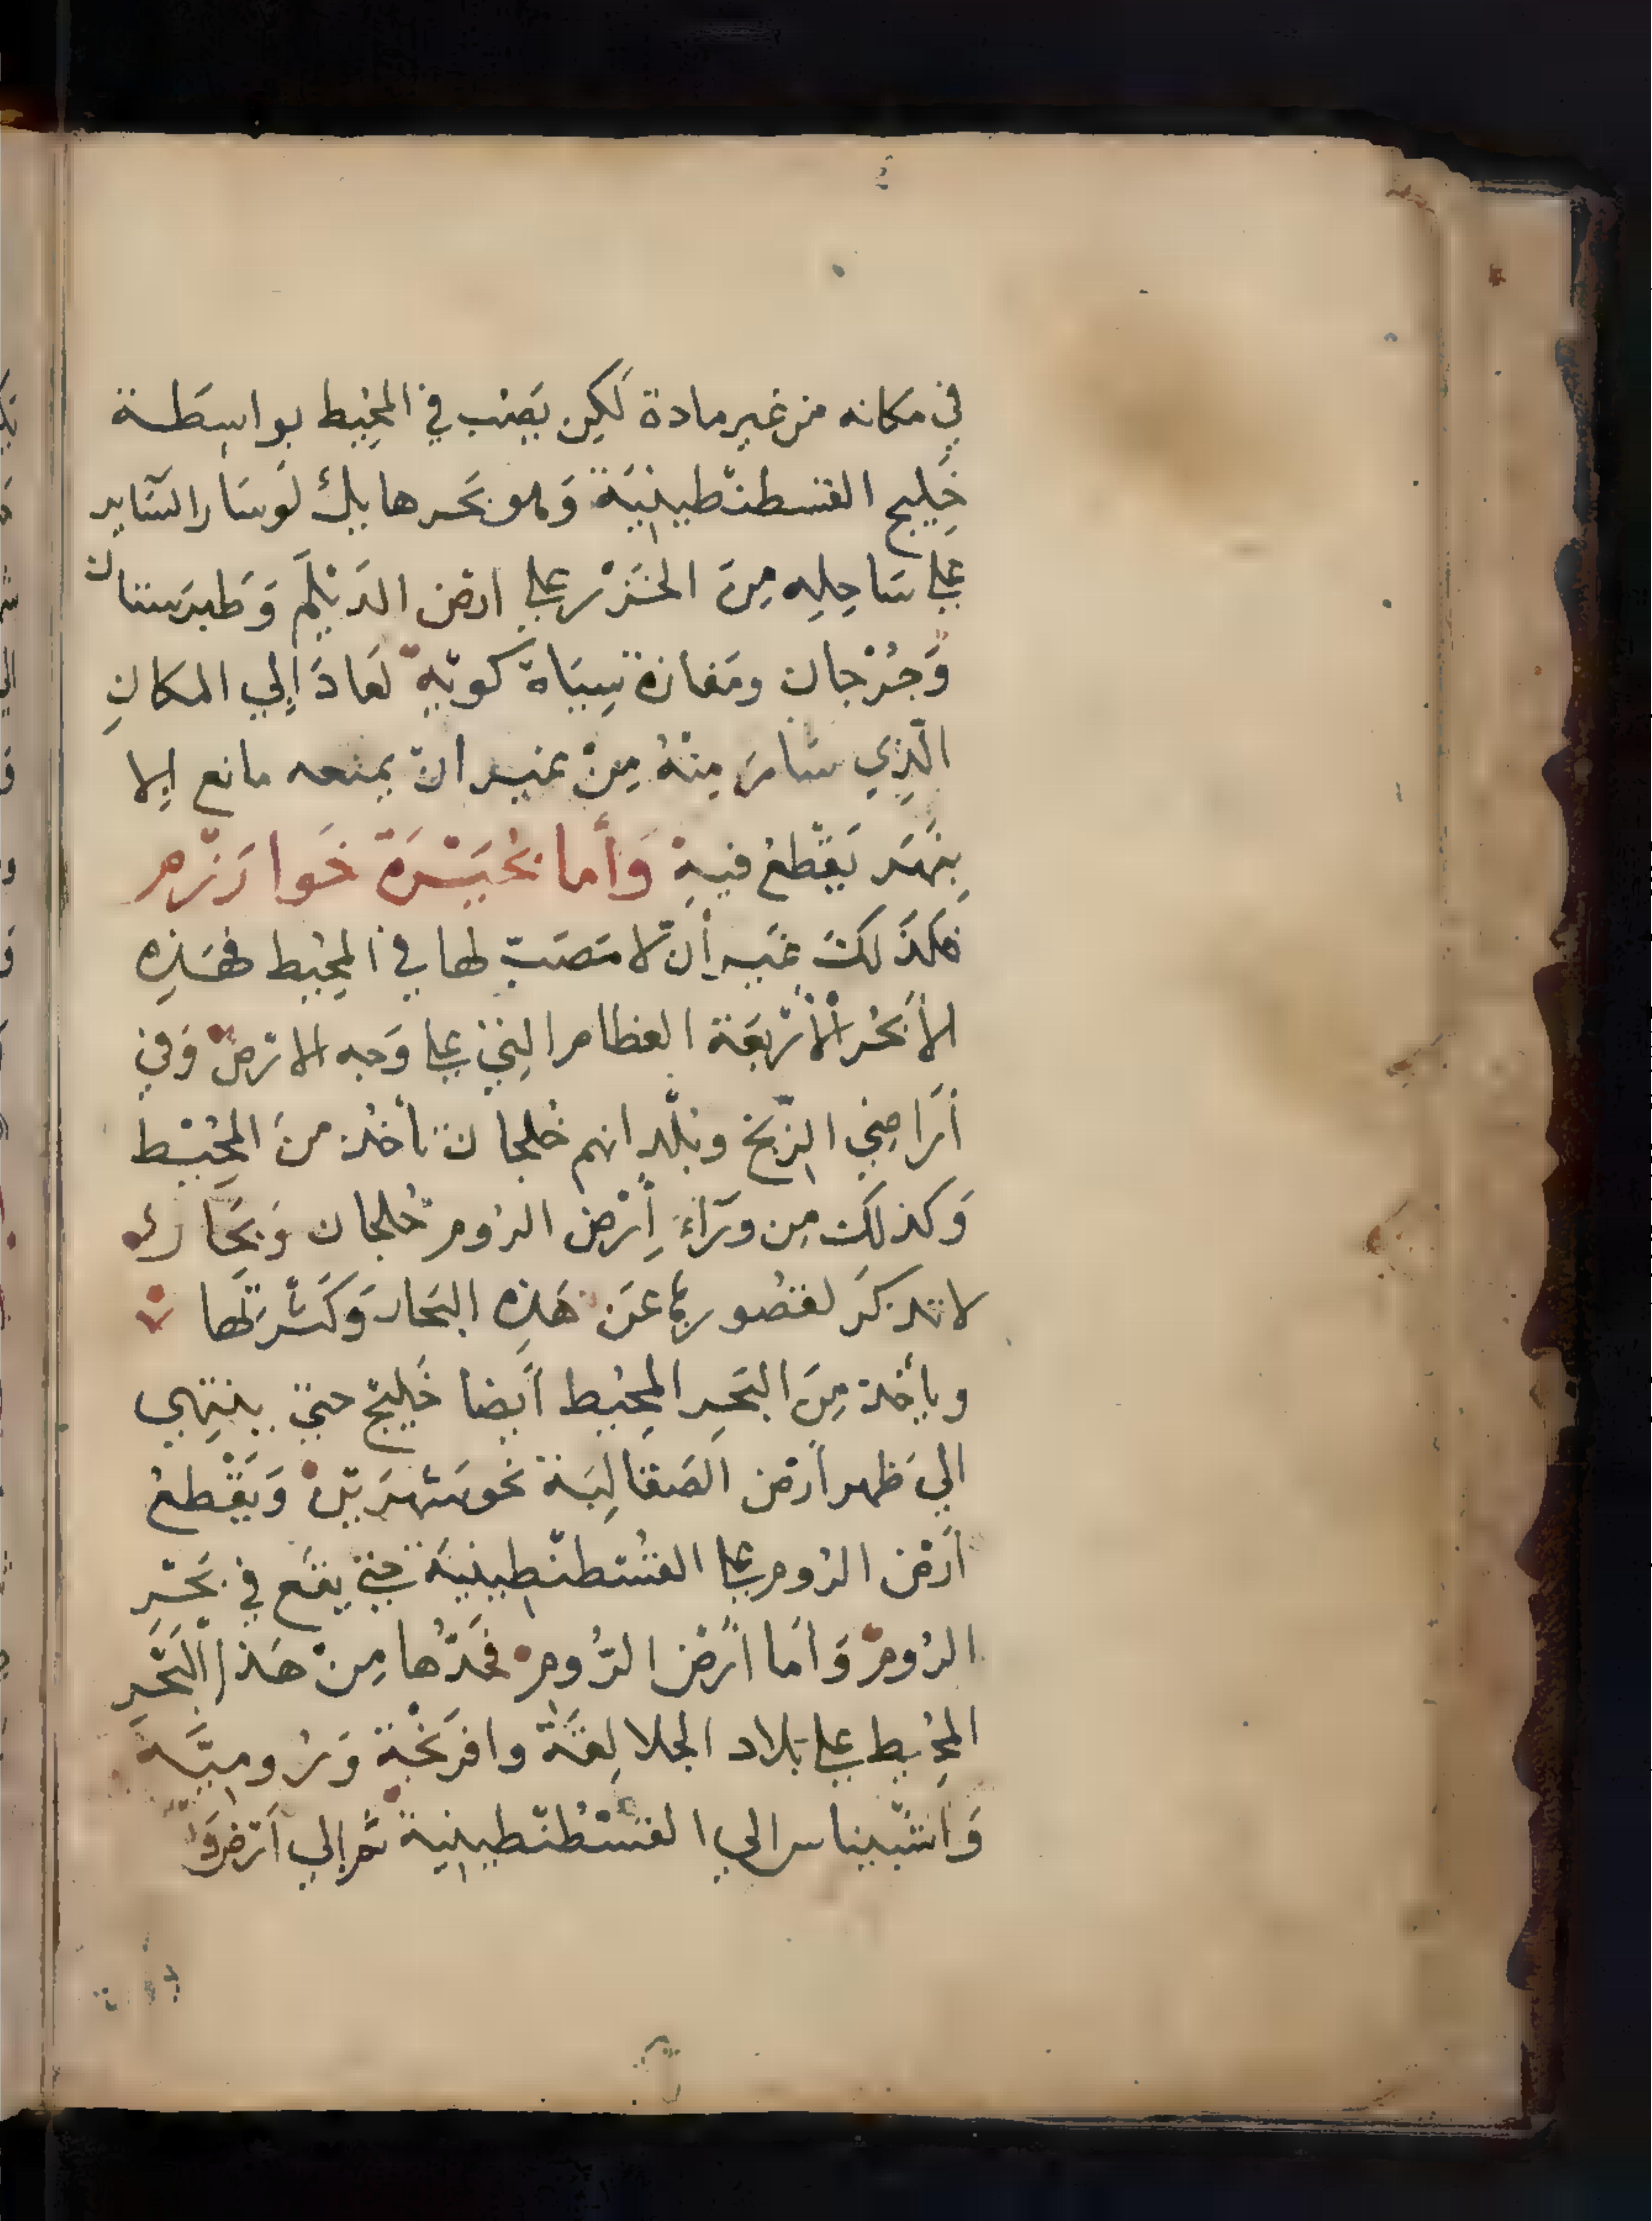 في مكانه من غير مادة لكِن يَصُب في المحِيط بواسِطَـة
خَلِيج القسطنطينيَّة وَهو بَحر هايل لَو سَار السَّاير
علي سَاحِلِه مِنَ الخَزَرْ علي ارض الدَيْلَم وَطَبرَستان
وَجُرْجان ومَفازة سِيَاة كويَه لَعادَ إلي المكانِ
الّذِي سَارَ مِنْهُ مِنْ غير انْ يمنعه مانع إلا
بِنَهَر يَقْطعُ فيهِ وَأما بحُيَيْرَة خَوارَزْم
فكذَلكَ غير أن لا مَصَبّ لها في المحُيط فهَذِه
الأَبحُر الأَرْبَعَة العظام الّتي علي وَجه الارْض وَفي
أَراضِي الزّنج وبُلْدانهم خُلجان تأخُذ منَ المحُيْط
وَكذلكَ مِن وَرَآءِ أَرْض الرُوم خُلجان وَبحَار
لا تذكَر لقصُورها عَن هَذِه البحَار وَكَثرَتها
ويأخُذ مِنَ البَحرِ المحُيط أيضا خَليجْ حتيّ ينتهي
الي ظهر أرْض الصَقالِبَة نحو شهرَيْن وَيَقْطعُ
أَرْض الرُوم علي القُسْطنْطِينيَة حتي يقَع في بَحْرِ
الرُومْ وَامَا أَرْض الرُّوم فحَدُّها مِنْ هَذا البَحْرِ
المحُيط علي بلاد الجلالِقَة وافرَنجْة وَرُوميَّه
وَاشّيناس الي القُسْطَنْطينية ثم إلي أرْض